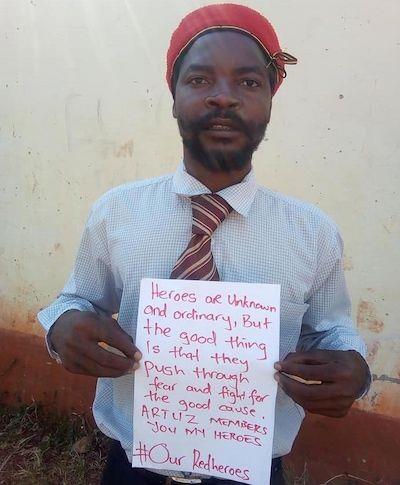 Heroes are Unknown
and ordinary, But
the good thing
Is that they
Push through
fear and fight for
the good cause.
ARTUZ MEMBERS
YOU MY HEROES
#Our Redheroes